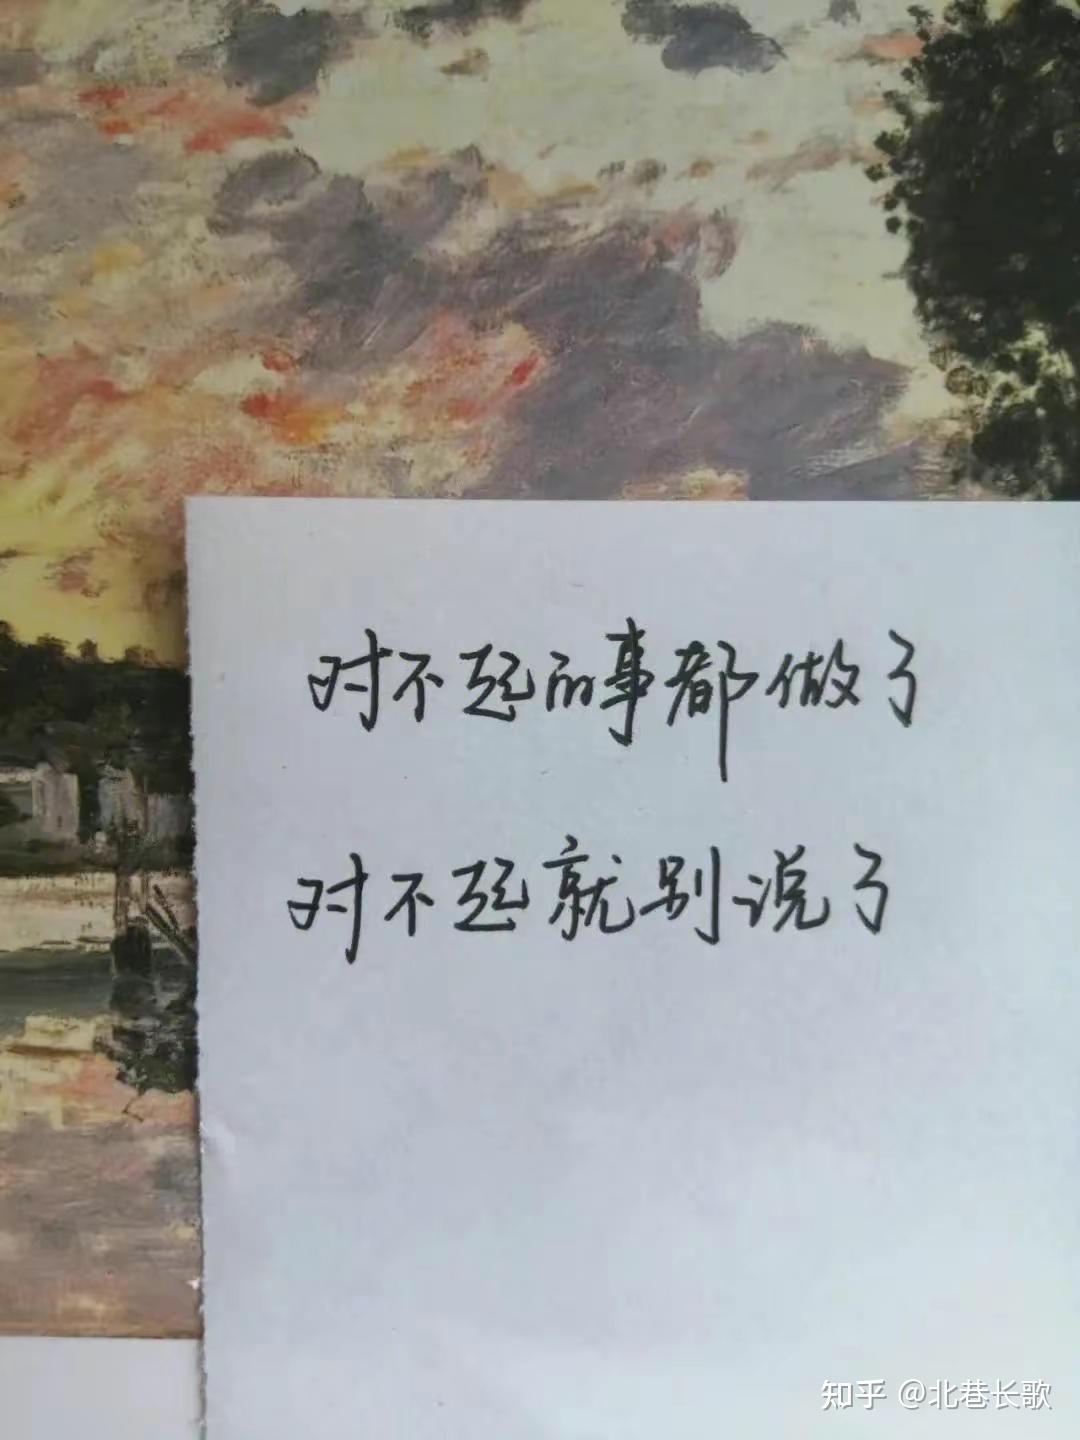 对不起的事都做了
对不起就别说了
知乎 @北巷长歌